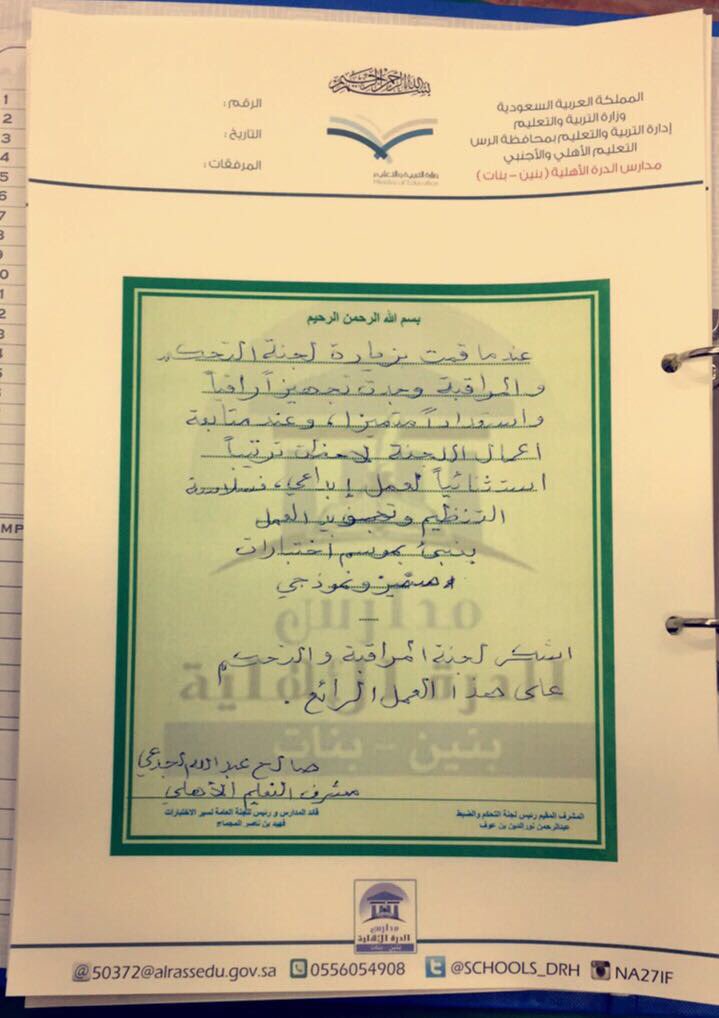 بسم الله الرحمن الرحيم
المملكة العربية السعودية
وزارة التربية والتعليم
إدارة التربية والتعليم بمحافظة الرس
التعليم الأهلي والأجنبي
مدارس الدرة الأهلية (بنين - بنات)
وزارة التربية والتعليم
Ministry of Education
الرقم :
التاريخ :
المرفقات :
بسم الله الرحمن الرحيم
عندما قمت بزيارة لجنة التحكم
والمراقبة وجدت تجهيزاً راقياً
واستعداداً متميزاً، وعند متابعة
اعمال اللجنة لاحظت ترتيباً
استثنائياً لعمل إبداعي، فسلاسة
التنظيم وتجويد العمل
ينبئ بموسم اختبارات
متميز ونموذجي
اشكر لجنة المراقبة والتحكم
على هذا العمل الرائع .
صالح عبدالله
مشرف التعليم الأهلي
المشرف المقيم رئيس لجنة التحكم والضبط
عبدالرحمن نورالدين بن عوف
قائد المدارس و رئيس اللجنة العامة لسير الاختبارات
فهيد بن ناصر المجماج
مدارس
الدرة الأهلية
بنين - بنات
مدارس
الدرة الأهلية
بنين - بنات
@50372@alrassedu.gov.sa 0556054908 @SCHOOLS_DRH NA27IF
1
2
3
4
5
6
7
8
9
0
1
2
3
4
5
MP